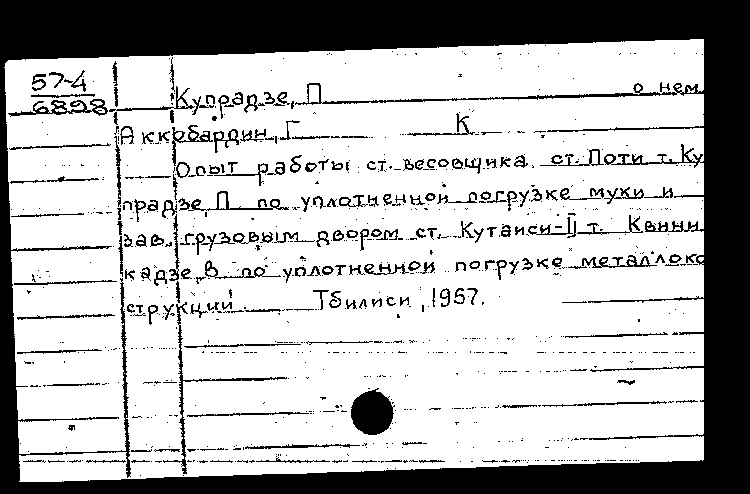 57-4
6898
Купрадзе, П о нем
Аккобардин, Г К
Опыт работы ст. весовщика ст. Поти т. Ку
прадзе, П по уплотненной погрузке муки и
зав. грузовым двором ст. Кутаиси-II т. Квини
кадзе, В по уплотненной погрузке металлоко
струкций. Тбилиси, 1957.